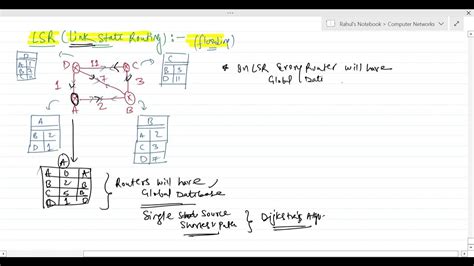 Rahul's Notebook > Computer Networks
LSR (Link State Routing) :- (flooding)
D
A 1
C
B 3
D 11
D 11 C
1 7 3
A 2 B
* In LSR Every Router will have
Global Dat
A
B 2
D 1
B
A 2
C 3
D 7
A
A 0 A
B 2 B
C 5 B
D 1 D
Routers will have
Global Database
Single Source
Shortest Path
Dijkstra's Algo